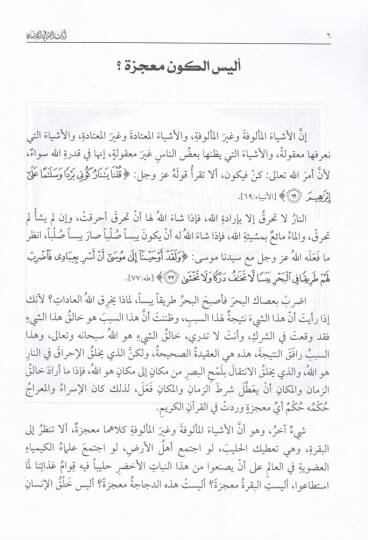 ٦
أليس الكون معجزة ؟
إنَّ الأشياءَ المألوفةَ وغيرَ المألوفةِ، والأشياءَ المعتادةَ وغيرَ المعتادةِ، والأشياءَ التي
نعرفها معقولةً، والأشياءَ التي يظنها بعضُ الناسِ غيرَ معقولةٍ، إنها في قدرةِ اللهِ سواءٌ،
لأنَّ أمرَ اللهِ تعالى: كنْ فيكون، ألا تقرأُ قولَهُ عز وجل: ﴿قُلْنَا يَنَارُ كُونِي بَرْدًا وَسَلَمًا عَلَىٰ
إِبْرَاهِيمَ ﴿٦٩﴾﴾ [الأنبياء:٦٩].
النارُ لا تحرقُ إلا بإرادةِ اللهِ، فإذا شاءَ اللهُ لها أنْ تحرقَ أحرقتْ، وإن لم يشأْ لم
تحرقْ، والماءُ مائعٌ بمشيئةِ اللهِ، فإذا شاءَ اللهُ له أنْ يكونَ يبساً صُلباً صارَ يبساً صُلباً، انظر
ما فعلَه اللهُ عز وجل مع سيدنا موسى: ﴿وَلَقَدْ أَوْحَيْنَا إِلَىٰ مُوسَىٰ أَنْ أَسْرِ بِعِبَادِي فَاضْرِبْ
لَهُمْ طَرِيقًا فِي الْبَحْرِ يَبَسًا لَا تَخَافُ دَرَكًا وَلَا تَخْشَىٰ ﴿٧٧﴾﴾ [طه:٧٧].
اضربْ بعصاك البحرَ فأصبحَ البحرُ طريقاً يبساً، لماذا يخرِق اللهُ العاداتِ؟ لأنك
إذا رأيتَ أنَّ هذا الشيءَ نتيجةٌ لهذا السببِ، وظننتَ أنَّ هذا السببَ هو خالقُ هذا الشيءِ
فقد وقعتَ في الشركِ، وأنتَ لا تدري، خالقُ الشيءِ هو اللهُ سبحانه وتعالى، وهذا
السببُ رافقَ النتيجةَ، هذه هي العقيدةُ الصحيحةُ، ولكنَّ الذي يخلقُ الإحراقَ في النارِ
هو اللهُ، والذي يخلقُ الانتقالَ بلَمْحِ البصرِ من مكانٍ إلى مكانٍ هو اللهُ، فإذا ما أرادَ خالقُ
الزمانِ والمكانِ أنْ يعطِّلَ شرطَ الزمانِ والمكانِ فَعَلَ، لذلك كان الإسراءُ والمعراجُ
حُكْمُه حُكْمُ أيِّ معجزةٍ وردتْ في القرآنِ الكريمِ.
شيءٌ آخرُ، وهو أنَّ الأشياءَ المألوفةَ وغيرَ المألوفةِ كلاهما معجزةٌ، ألا تنظرُ إلى
البقرةِ، وهي تعطيك الحليبَ، لو اجتمع أهلُ الأرضِ، لو اجتمعَ علماءُ الكيمياءِ
العضويةِ في العالمِ على أنْ يصنعوا من هذا النباتِ الأخضرِ حليباً فيه قِوامُ غذائِنا لما
استطاعوا، أليستِ البقرةُ معجزةً؟ أليستْ هذه الدجاجةُ معجزةً؟ أليس خَلْقُ الإنسانِ